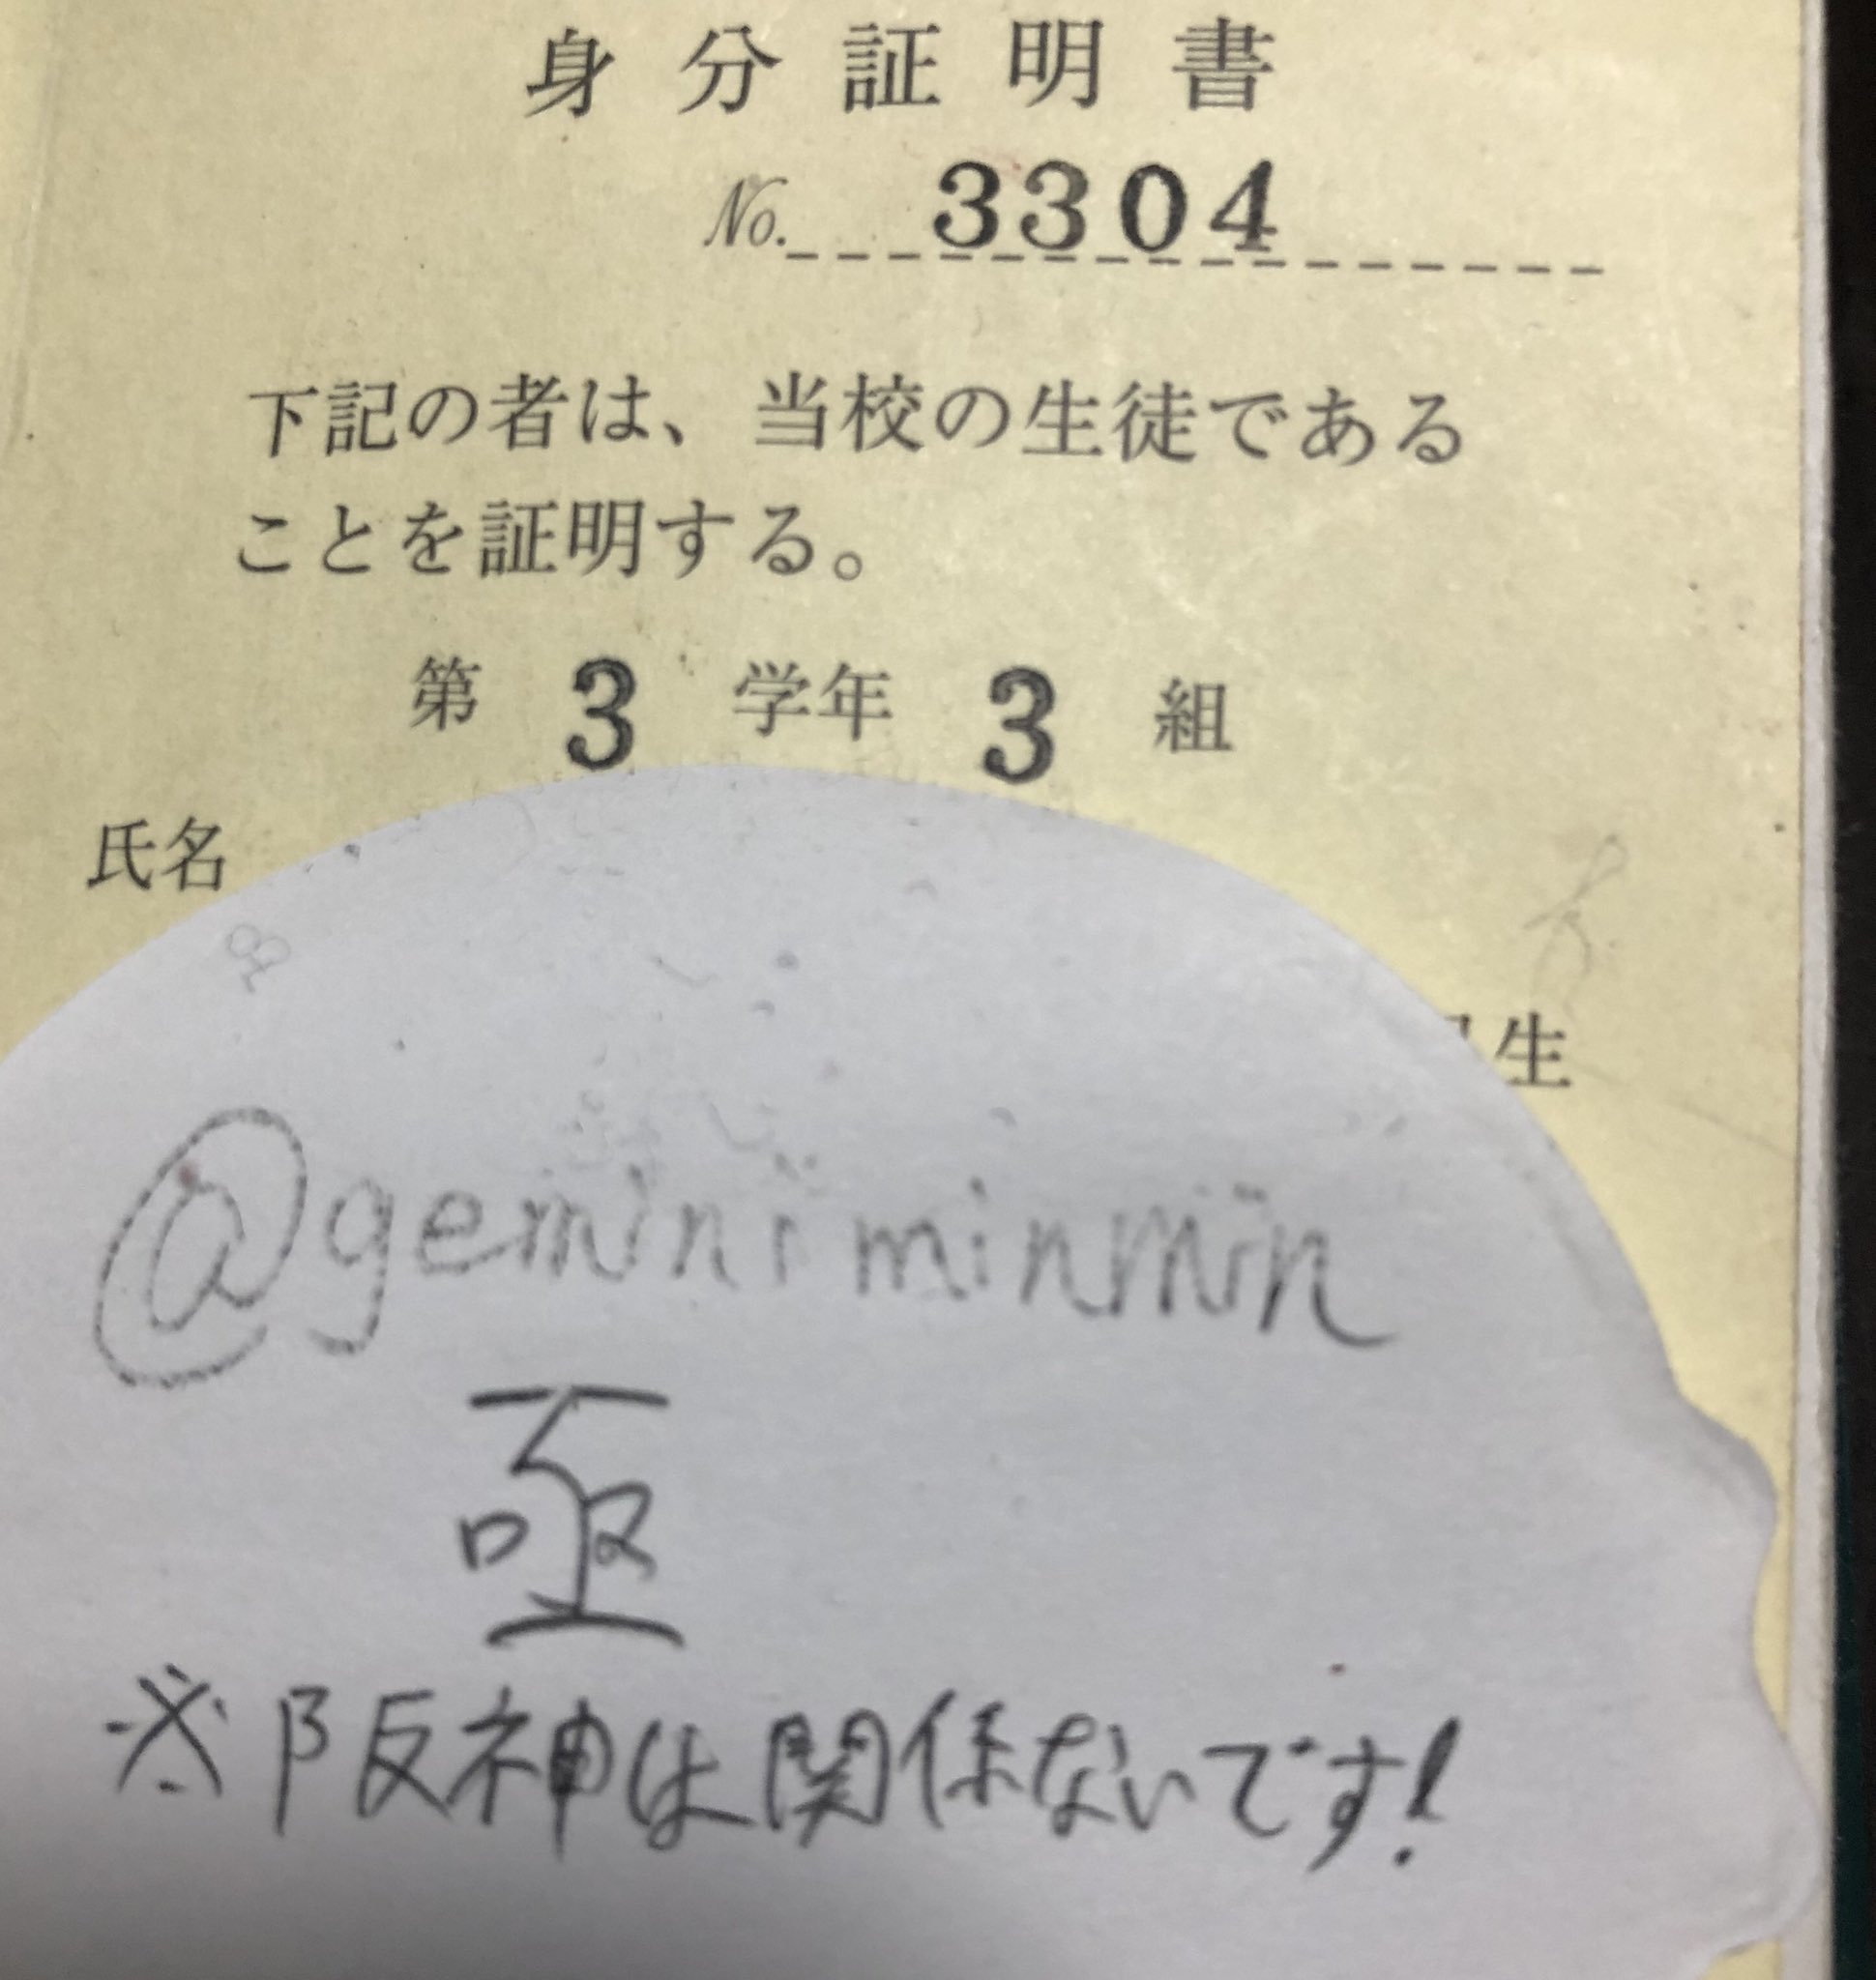 身分証明書
No. 3304
下記の者は、当校の生徒である
ことを証明する。
第 3 学年 3 組
氏名
生
@geminiminmin
亟
※阪神は関係ないです!